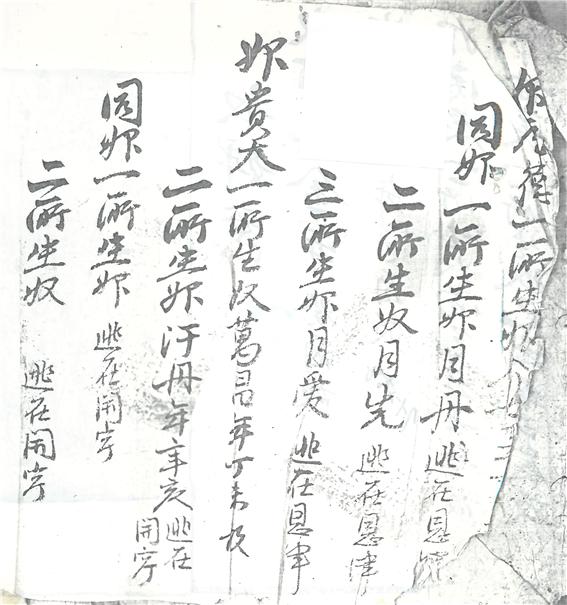 德一所生
同婢一所生婢月丹逃在恩津
二所生奴月先逃在恩津
三所生婢月愛逃在恩津
婢貴一所生奴萬昌年丁未
二所生婢汗丹年辛亥逃在
開寧
同婢一所生婢逃在開寧
二所生奴逃在開寧